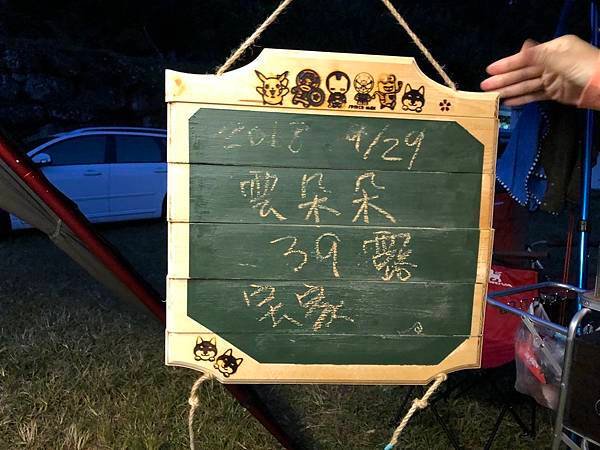 2018 9/29
雲朵朵
39露